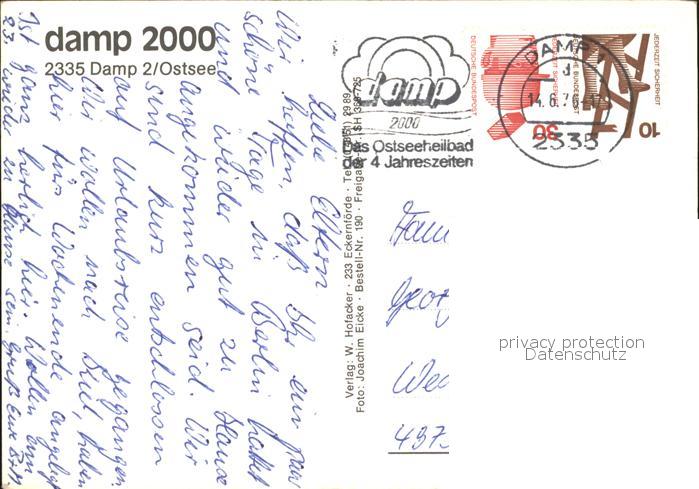 damp 2000
2335 Damp 2/Ostsee
Liebe Eltern
Wir hoffen, daß Ihr ein paar
schöne Tage in Berlin hattet
und wieder gut zu Hause
angekommen seid. Wir
sind kurz entschlossen
auf Urlaubsreise gegangen.
wollen nach Kiel, haben
hier für Wochenende angelegt
Ist ganz herrlich hier. Wollen zum
23. wieder zu Hause sein. Gruß
Verlag: W. Hofacker · 233 Eckernförde · Tel. (04351) 2989
Foto: Joachim Eicke · Bestell-Nr. 190 · Freigabe-Nr. SH
damp
2000
Das Ostseeheilbad
der 4 Jahreszeiten
DEUTSCHE BUNDESPOST
JEDERZEIT SICHERHEIT
30
DEUTSCHE BUNDESPOST
JEDERZEIT SICHERHEIT
10
DAMP
d
14.8.76
2335
Fam
Geor
We
437
privacy protection
Datenschutz